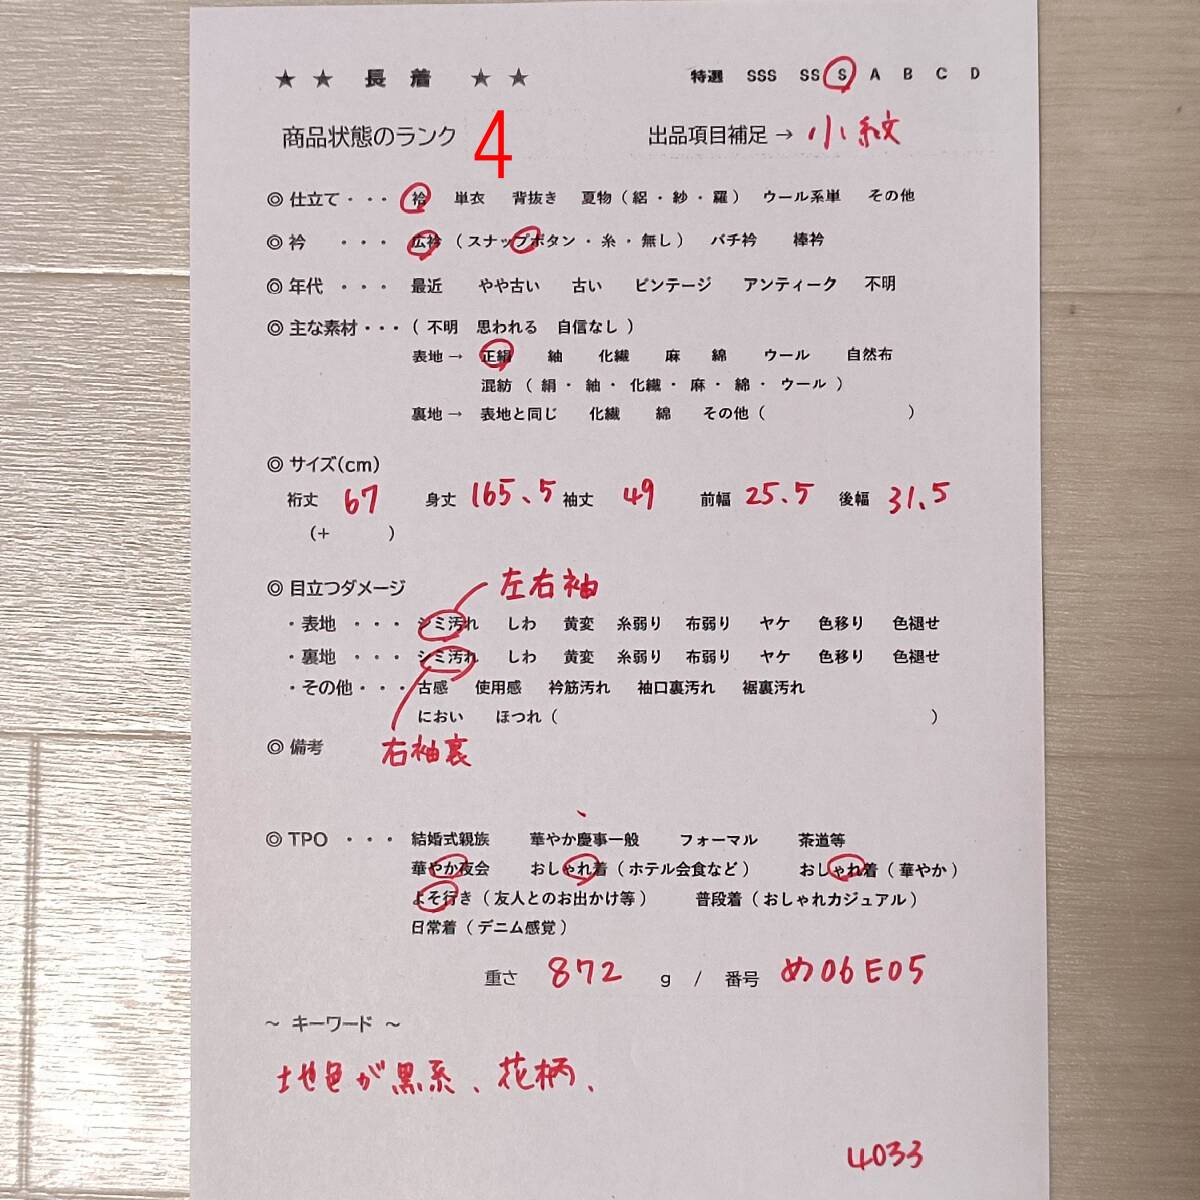 ★ ★ 長 着 ★ ★ 特選 SSS SS S A B C D
商品状態のランク 4 出品項目補足→ 小紋
◎ 仕立て・・・ 袷 単衣 背抜き 夏物(絽・紗・羅) ウール系単 その他
◎ 衿 ・・・ 広衿(スナップボタン・糸・無し) バチ衿 棒衿
◎ 年代 ・・・ 最近 やや古い 古い ビンテージ アンティーク 不明
◎ 主な素材・・・(不明 思われる 自信なし)
表地→ 正絹 紬 化繊 麻 綿 ウール 自然布
混紡(絹・紬・化繊・麻・綿・ウール)
裏地→ 表地と同じ 化繊 綿 その他( )
◎ サイズ(cm)
裄丈 67 身丈 165.5 袖丈 49 前幅 25.5 後幅 31.5
(+ )
◎ 目立つダメージ 左右袖
・表地 ・・・ シミ汚れ しわ 黄変 糸弱り 布弱り ヤケ 色移り 色褪せ
・裏地 ・・・ シミ汚れ しわ 黄変 糸弱り 布弱り ヤケ 色移り 色褪せ
・その他・・・ 古感 使用感 衿筋汚れ 袖口裏汚れ 裾裏汚れ
におい ほつれ( )
◎ 備考 右袖裏
◎ TPO ・・・ 結婚式親族 華やか慶事一般 フォーマル 茶道等
華やか夜会 おしゃれ着(ホテル会食など) おしゃれ着(華やか)
よそ行き(友人とのお出かけ等) 普段着(おしゃれカジュアル)
日常着(デニム感覚)
重さ 872 g / 番号 め06E05
～ キーワード ～
地色が黒系、花柄、
4033